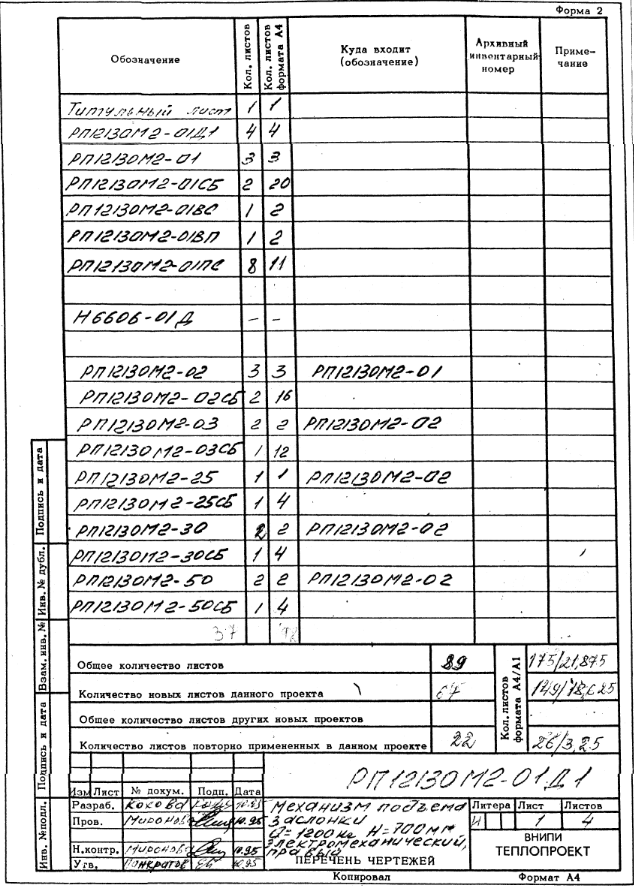 Форма 2
Обозначение Кол. листов Кол. листов формата А4 Куда входит (обозначение) Архивный инвентарный номер Примечание
Титульный лист 1 1
РП12130М2-01Д1 4 4
РП12130М2-01 3 3
РП12130М2-01СБ 2 20
РП12130М2-01ВС 1 2
РП12130М2-01ВП 1 2
РП12130М2-01ПС 8 11
Н6606-01Д - -
РП12130М2-02 3 3 РП12130М2-01
РП12130М2-02СБ 2 16
РП12130М2-03 2 2 РП12130М2-02
РП12130М2-03СБ 1 12
РП12130М2-25 1 1 РП12130М2-02
РП12130М2-25СБ 1 4
РП12130М2-30 2 2 РП12130М2-02
РП12130М2-30СБ 1 4
РП12130М2-50 2 2 РП12130М2-02
РП12130М2-50СБ 1 4
37
Общее количество листов 89
Количество новых листов данного проекта 67
Общее количество листов других новых проектов
Количество листов повторно примененных в данном проекте 22
Кол. листов формата А4/А1
175/21,875
149/18,625
26/3,25
РП12130М2-01Д1
Изм Лист № докум. Подп. Дата
Разраб. 10.95
Пров. Миронова 10.95
Н.контр. Миронова 10.95
Утв. Панкратов 10.95
Механизм подъема
заслонки
Q=1200кг H=700мм
электромеханический,
правый
ПЕРЕЧЕНЬ ЧЕРТЕЖЕЙ
Литера Лист Листов
И 1 4
ВНИПИ
ТЕПЛОПРОЕКТ
Копировал Формат А4
Инв. №подл. Подпись и дата Взам. инв. № Инв. № дубл. Подпись и дата